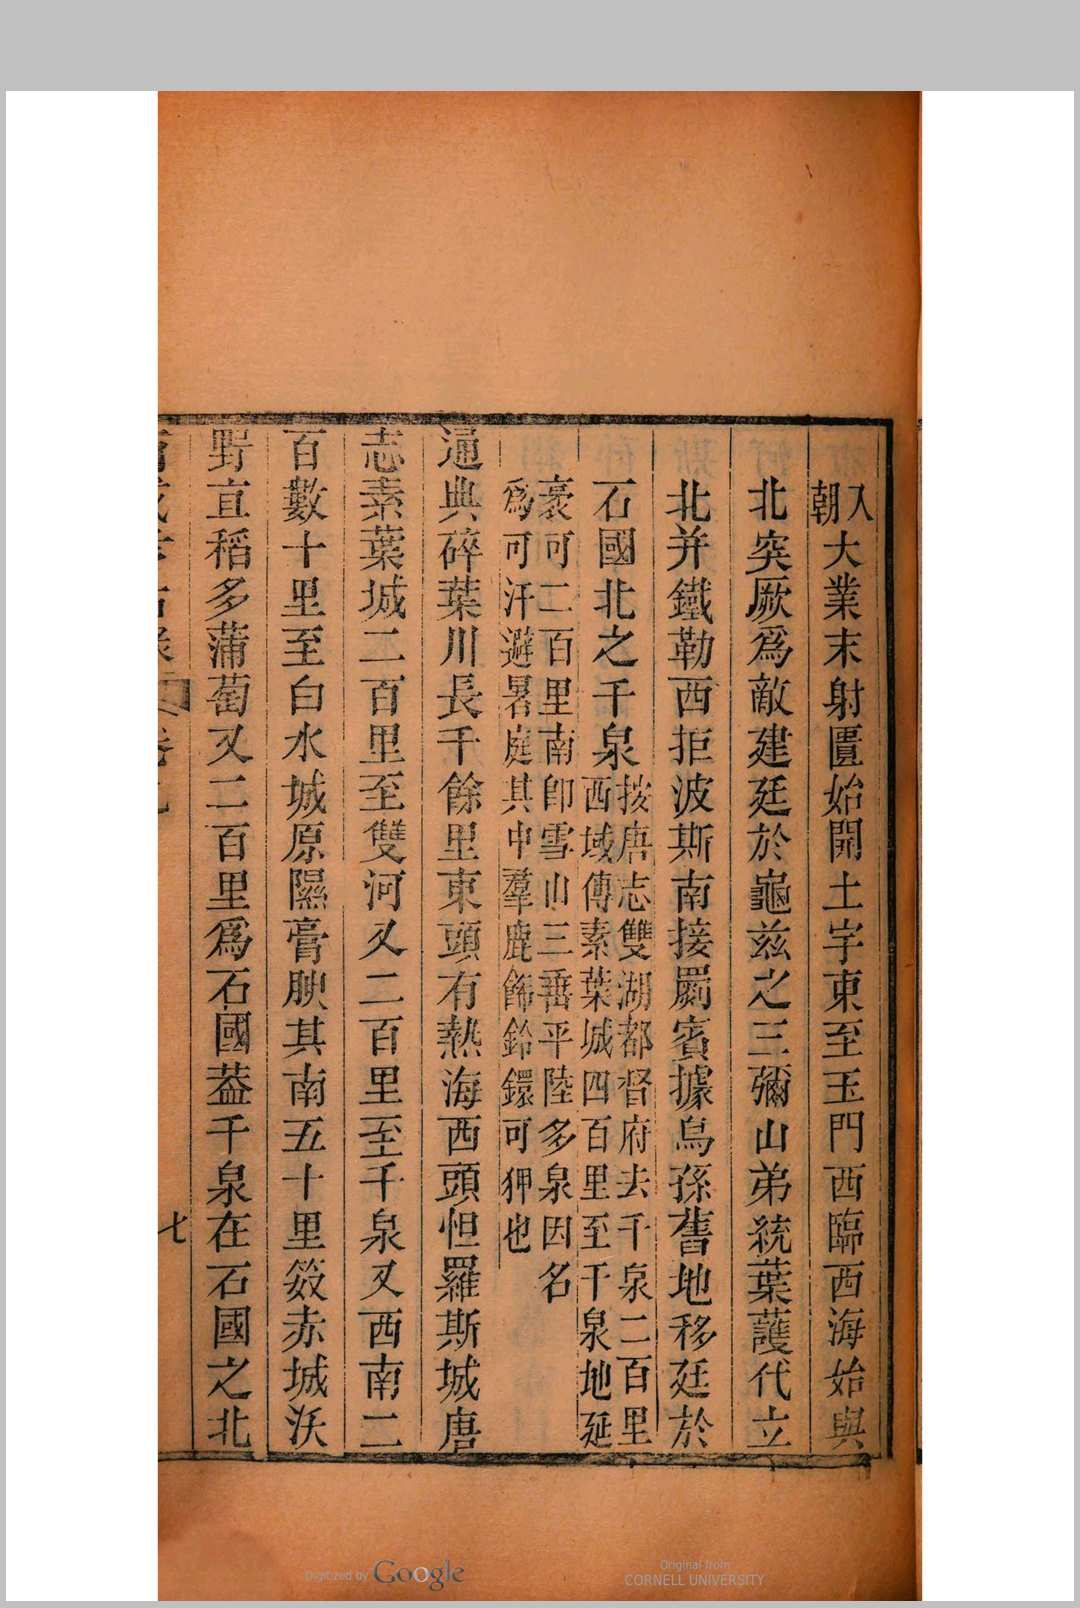 入朝大業末射匱始開土宇東至玉門西臨西海始與
北突厥爲敵建廷於龜兹之三彌山弟統葉護代立
北并鐵勒西拒波斯南接罽賓據烏孫舊地移廷於
石國北之千泉按唐志雙湖都督府去千泉二百里
西域傳素葉城四百里至千泉地延
袤可二百里南卽雪山三垂平陸多泉因名
爲可汗避暑庭其中羣鹿飾鈴鐶可狎也
通典碎葉川長千餘里東頭有熱海西頭怛羅斯城唐
志素葉城二百里至雙河又二百里至千泉又西南二
百數十里至白水城原隰膏腴其南五十里笯赤城沃
野宜稻多蒲萄又二百里爲石國葢千泉在石國之北
七
Digitized by Google
Original from
CORNELL UNIVERSITY